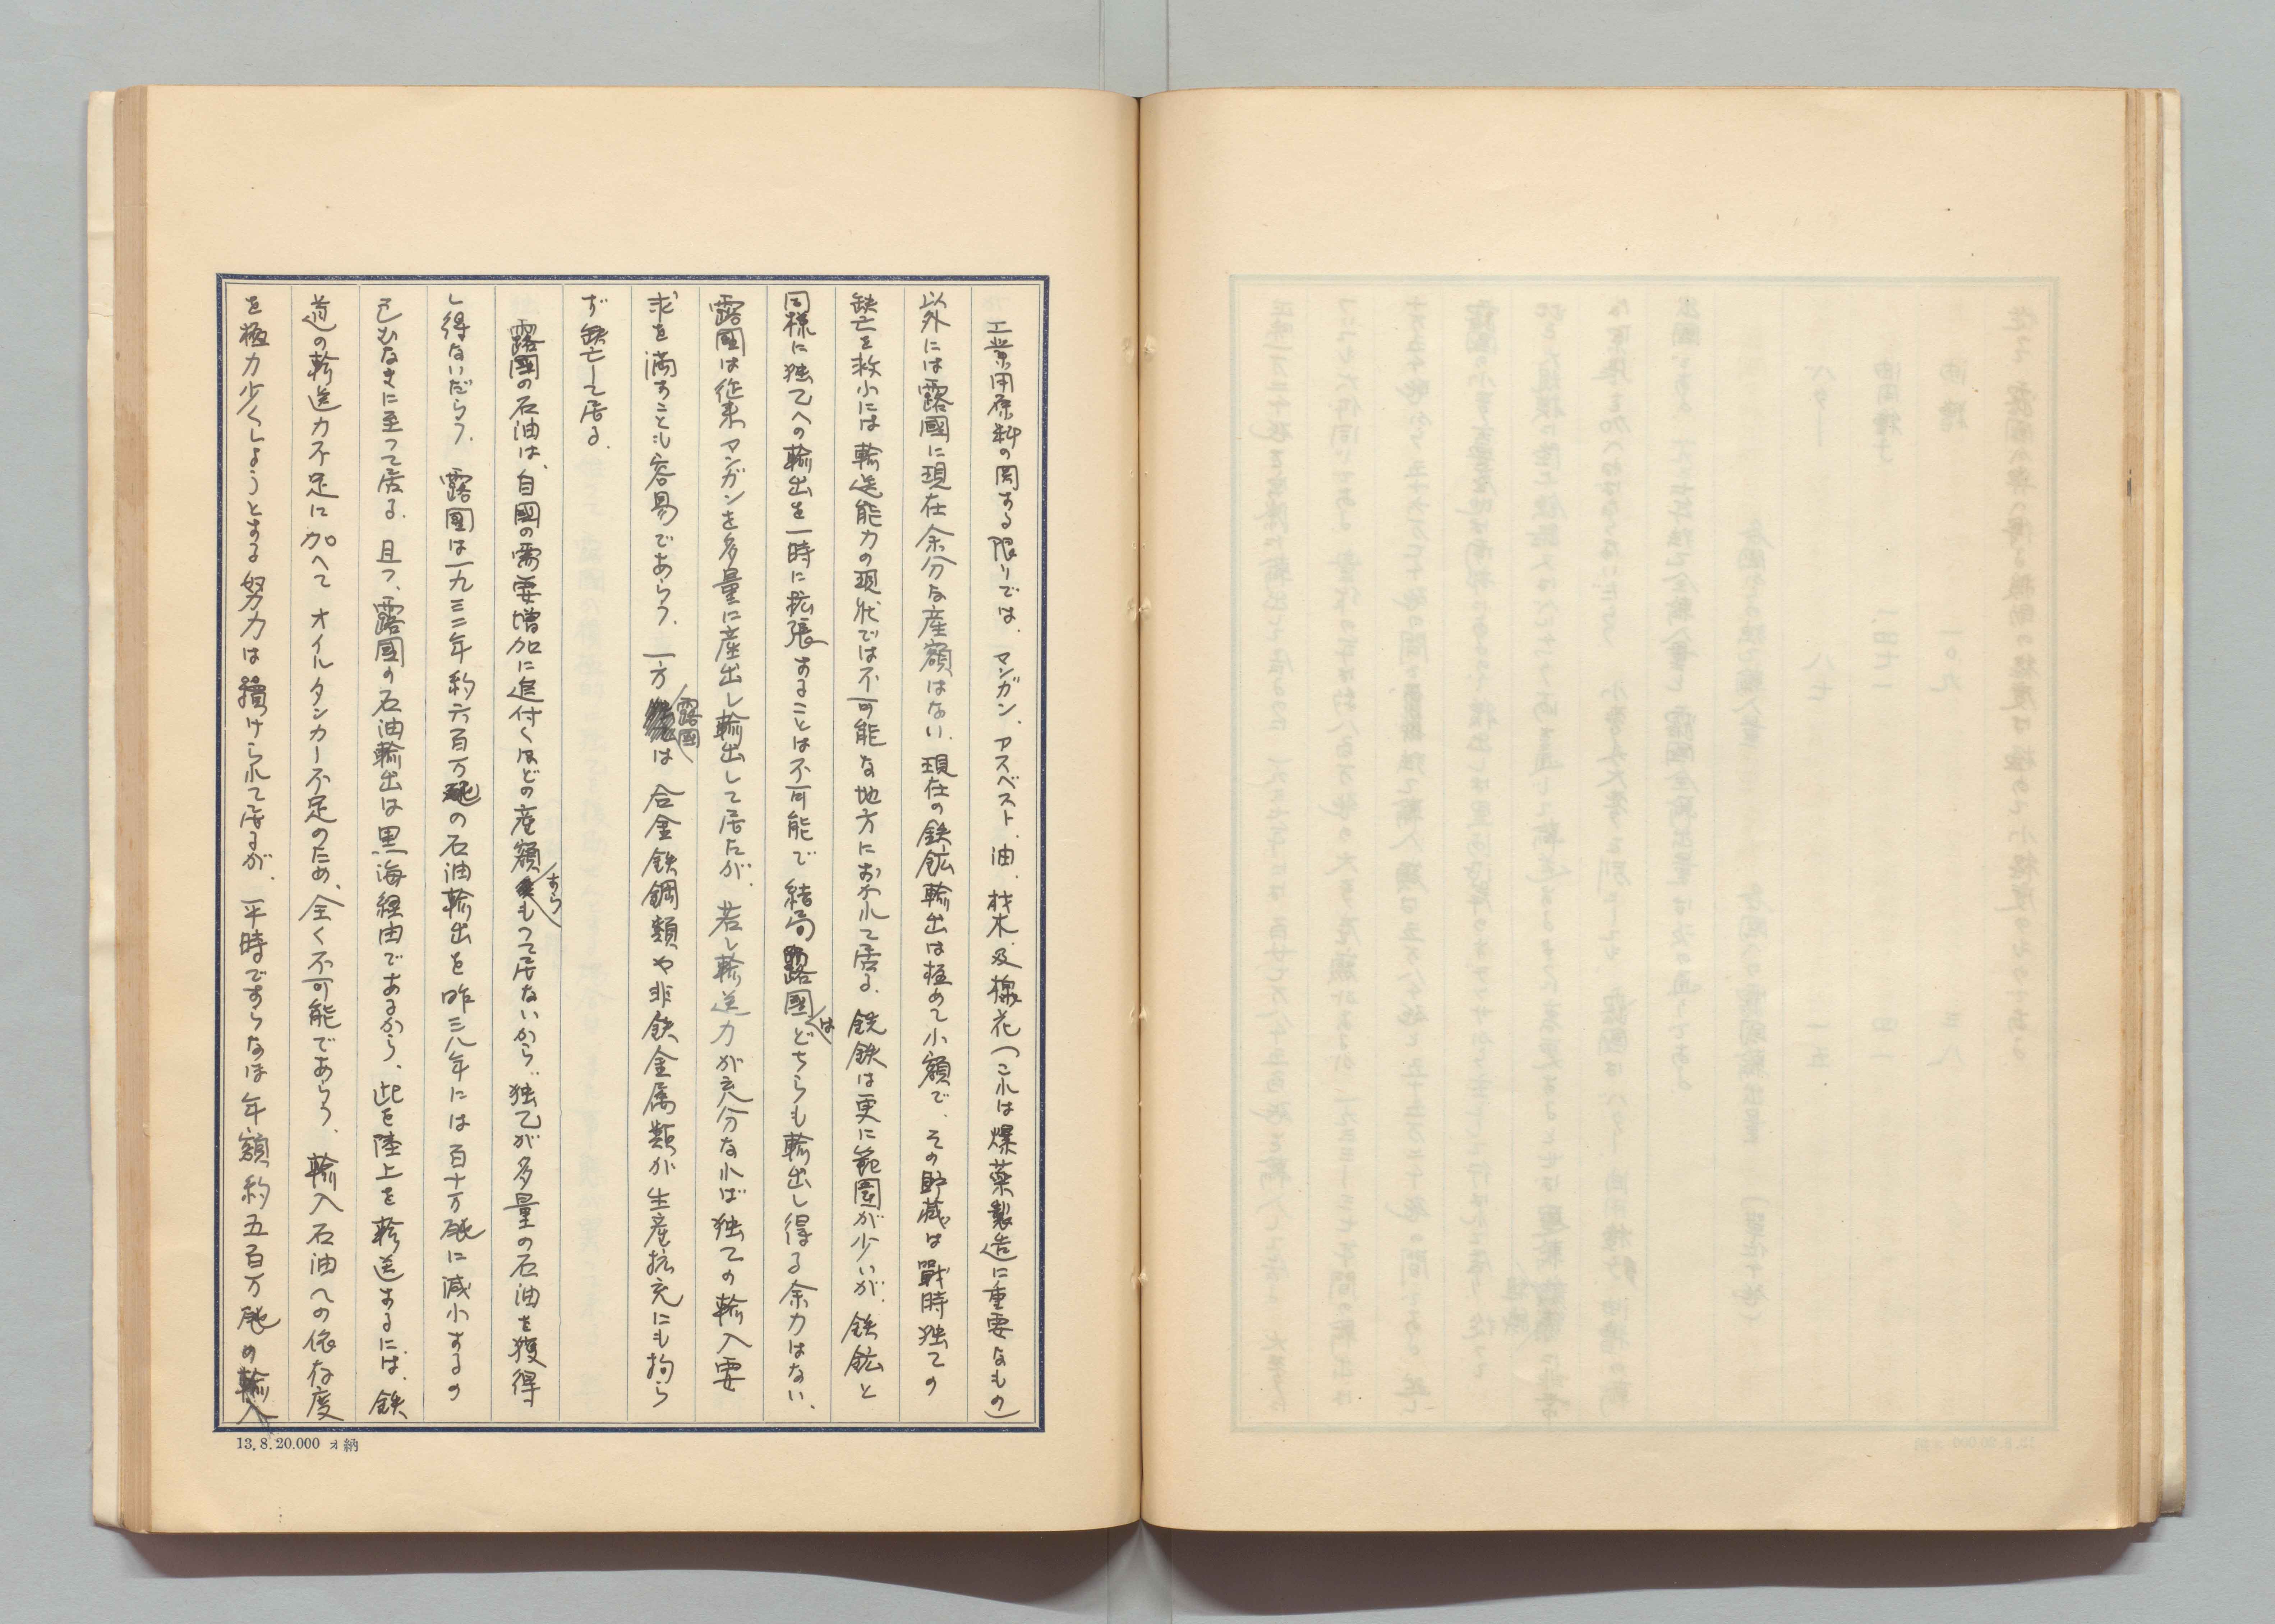 工業用原料の関する限りでは、マンガン、アスベスト、油、材木及棉花（これは爆薬製造に重要なもの）
以外には露國に現在余分な産額はない。現在の鉄鉱輸出は極めて小額で、その貯蔵は戰時独乙の
缺亡を救ふには輸送能力の現状では不可能な地方におかれて居る。銑鉄は更に範囲が少いが、鉄鉱と
同様に独乙への輸出を一時に拡張することは不可能で結局露國はどちらも輸出し得る余力はない、
露國は従来マンガンを多量に産出し輸出して居たが、若し輸送力が充分なれば独乙の輸入要
求を満すことも容易であらう。一方露國は合金鉄鋼類や非鉄金属類が生産拡充にも拘ら
ず缺亡して居る。
露國の石油は、自國の需要増加に追付くほどの産額すらもつて居ないから、独乙が多量の石油を獲得
し得ないだらう。露國は一九三二年約六百万瓲の石油輸出を昨三八年には百十万瓲に減小するの
已むなきに至つて居る。且つ、露國の石油輸出は黒海経由であるから、此を陸上を輸送するには、鉄
道の輸送力不足に加へてオイルタンカー不足のため、全く不可能であらう。輸入石油への依存度
を極力少くしようとする努力は續けられて居るが、平時ですらなほ年額約五百万瓲の輸入
13.8.20.000 オ納